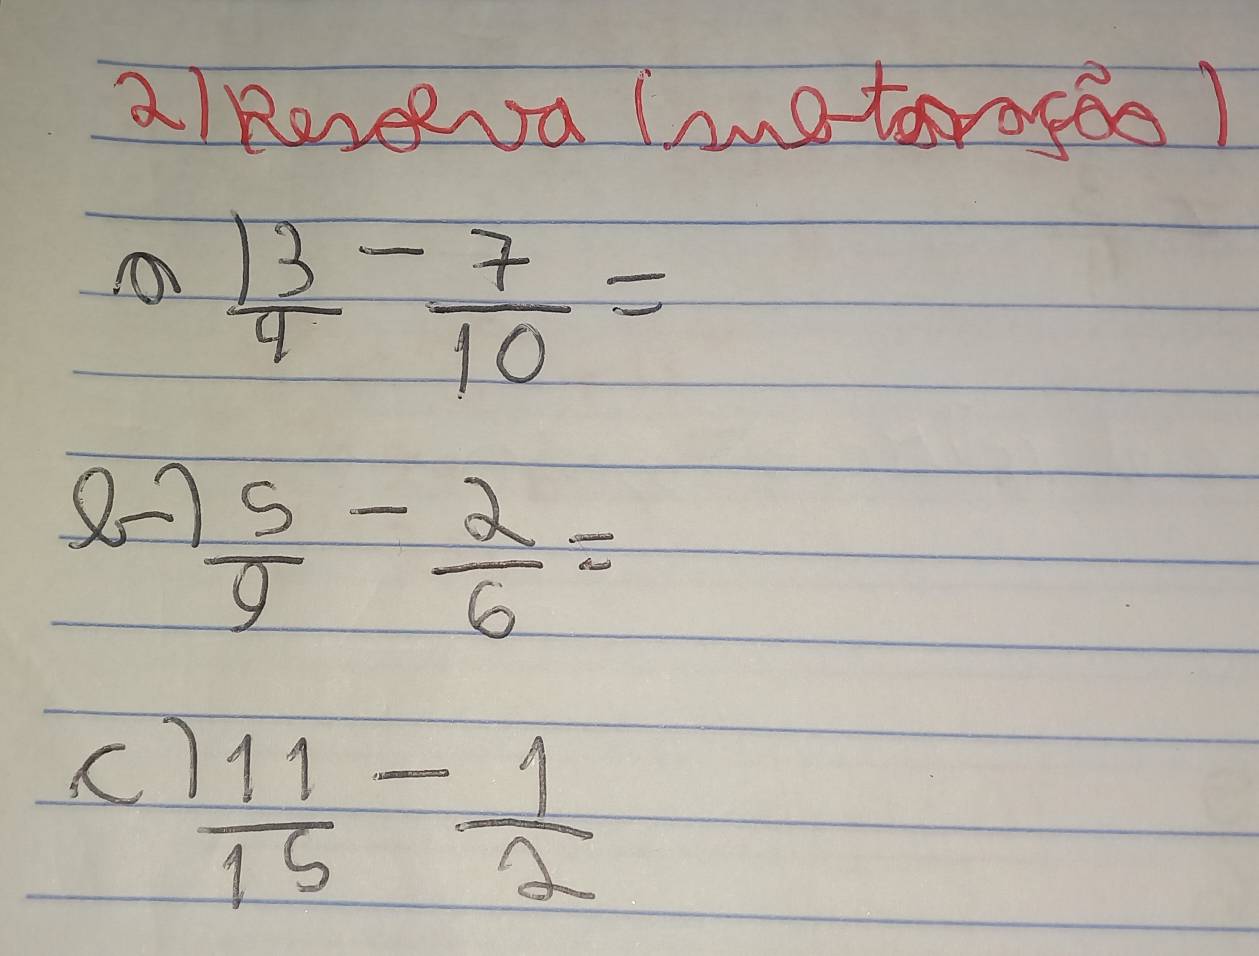 2) Resolva (subtoração)
a) 3/4 - 7/10 =
b-) 5/9 - 2/6 =
c) 11/15 - 1/2